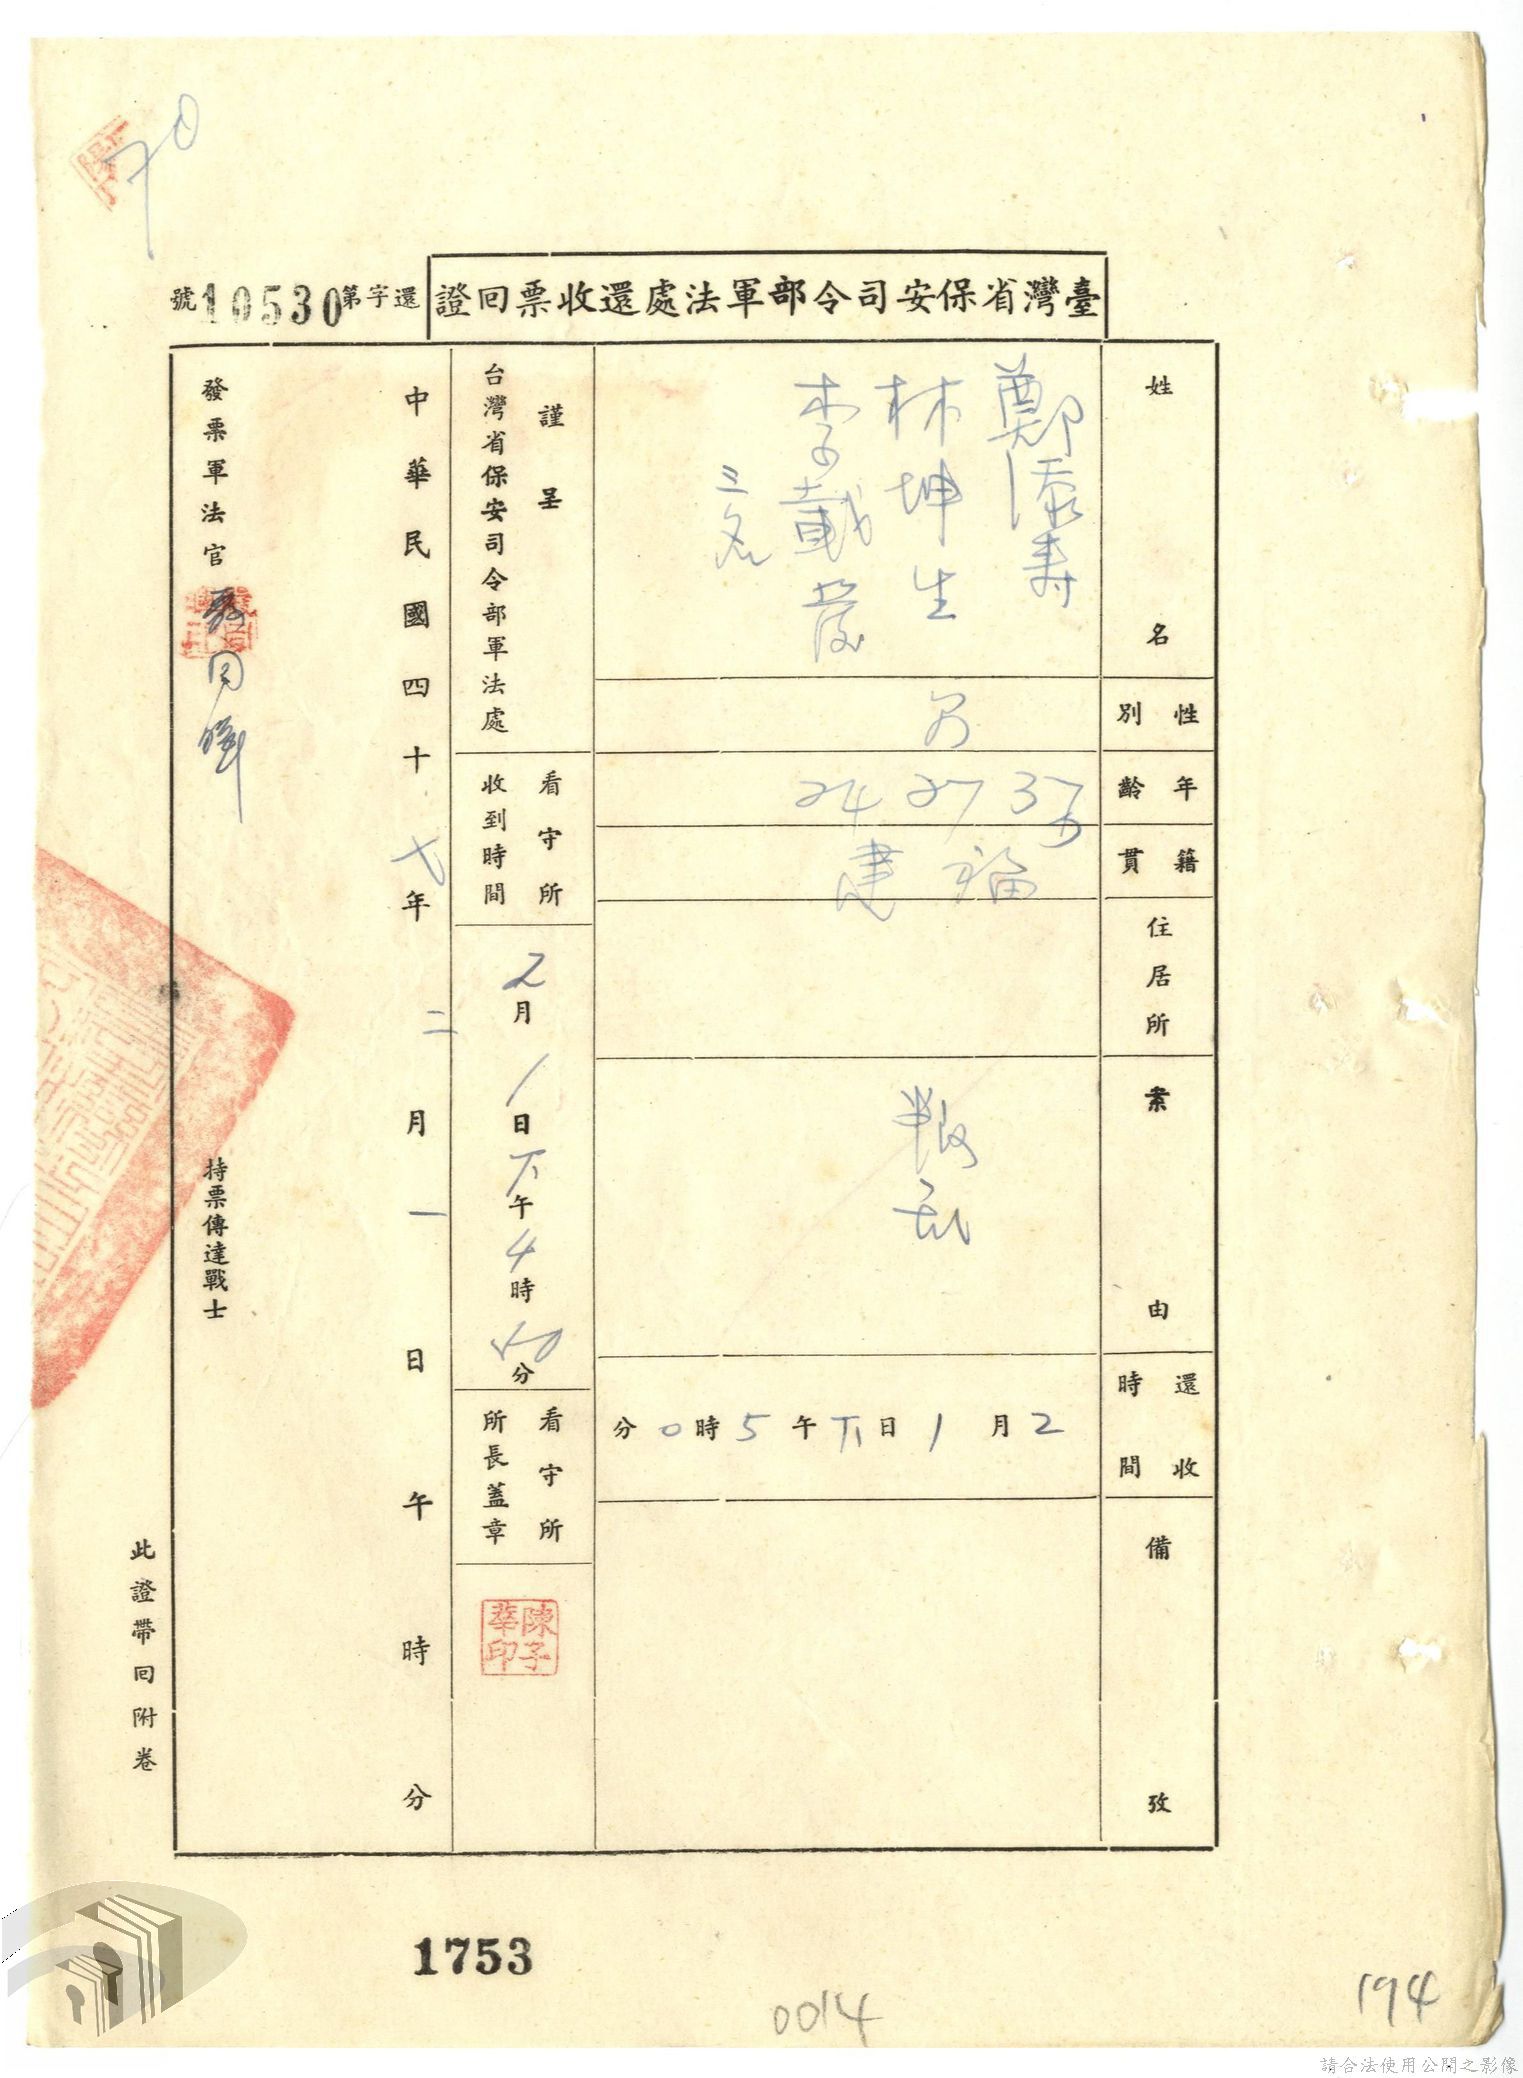 70
臺灣省保安司令部軍法處還收票回證
還字第10530號
姓名
鄭添壽
林坤生
李戴發
三名
性別
男
年齡
37
27
24
籍貫
福建
住居所
案由
叛亂
還收時間
2月1日下午5時0分
備攷
謹呈
台灣省保安司令部軍法處
看守所收到時間
2月1日下午4時50分
看守所所長蓋章
陳子華印
中華民國四十七年二月一日午時分
發票軍法官
持票傳達戰士
此證帶回附卷
1753
0014
194
請合法使用公開之影像